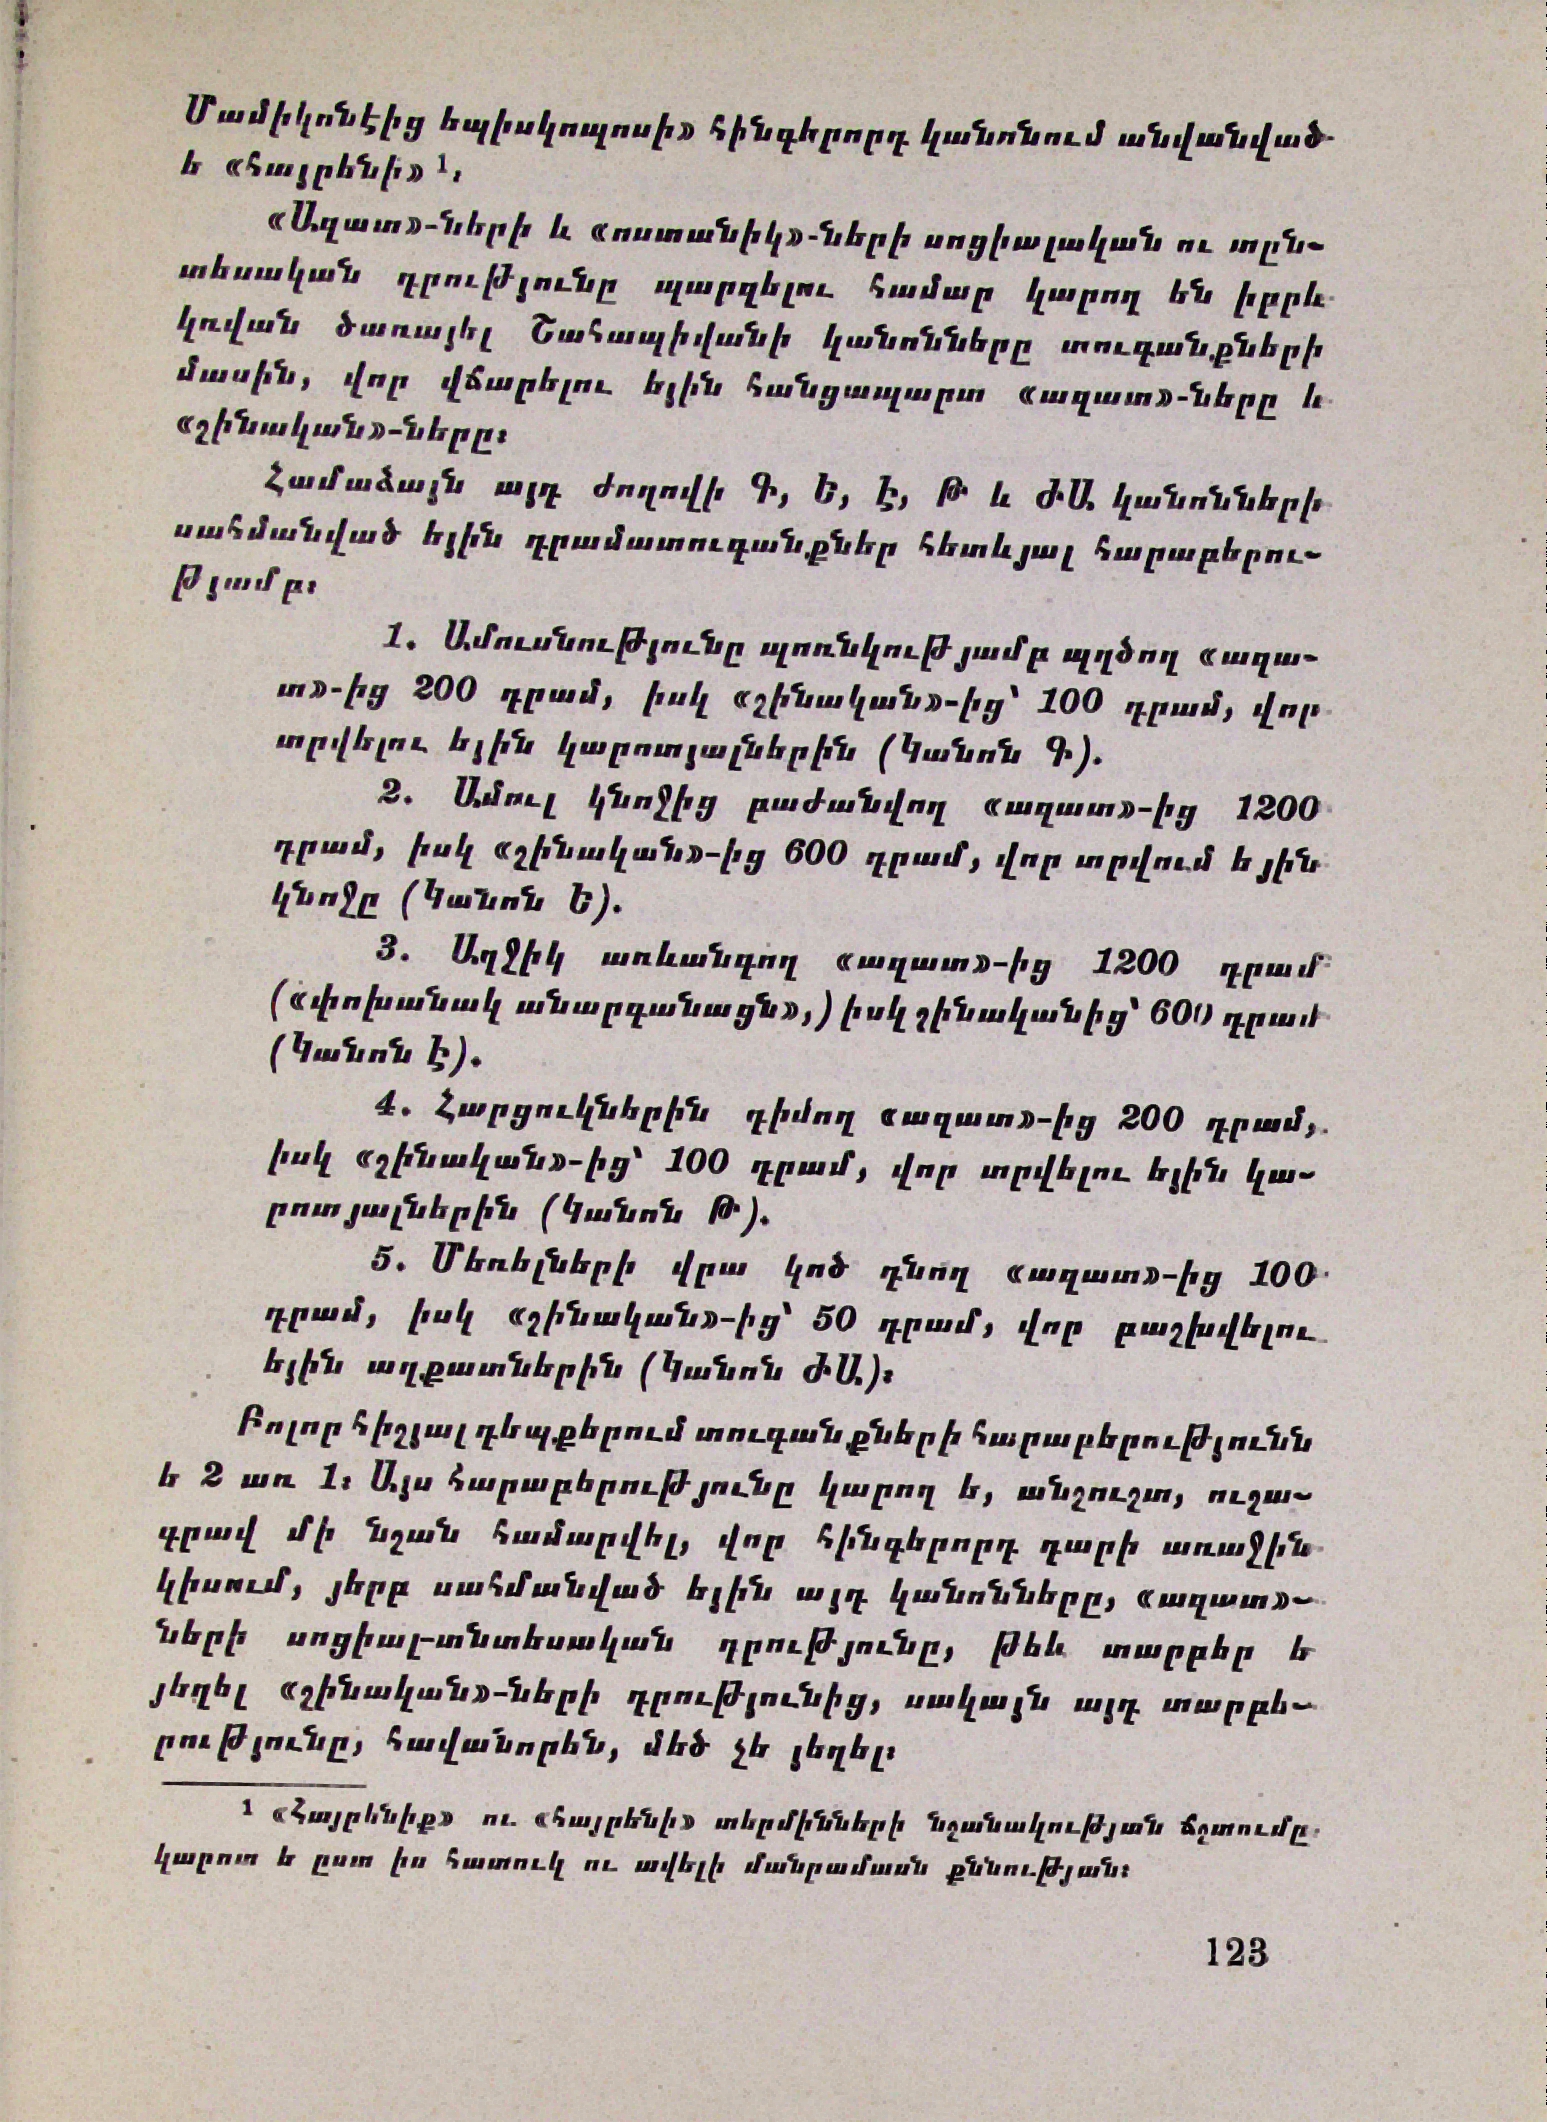 Մամիկոնէից եպիսկոպոսի» հինգերորդ կանոնում անվանված
է «հայրենի» ¹,
«Ազատ»-ների և «ոստանիկ»-ների սոցիալական ու տըն-
տեսական դրությունը պարզելու համար կարող են իբրև
կռվան ծառայել Շահապիվանի կանոնները տուգանքների
մասին, վոր վճարելու եյին հանցապարտ «ազատ»-ները և
«շինական»-ները։
Համաձայն այդ ժողովի Գ, Ե, Է, Թ և ԺԱ կանոնների
սահմանված եյին դրամատուգանքներ հետևյալ հարաբերու-
թյամբ։
1. Ամուսնությունը պոռնկությամբ պղծող «ազա-
տ»-ից 200 դրամ, իսկ «շինական»-ից՝ 100 դրամ, վոր
տրվելու եյին կարոտյալներին (Կանոն Գ).
2. Ամուլ կնոջից բաժանվող «ազատ»-ից 1200
դրամ, իսկ «շինական»-ից 600 դրամ, վոր տրվում եյին
կնոջը (Կանոն Ե).
3. Աղջիկ առևանգող «ազատ»-ից 1200 դրամ
(«փոխանակ անարգանացն»,) իսկ շինականից՝ 600 դրամ
(Կանոն Է).
4. Հարցուկներին դիմող «ազատ»-ից 200 դրամ,
իսկ «շինական»-ից՝ 100 դրամ, վոր տրվելու եյին կա-
րոտյալներին (Կանոն Թ).
5. Մեռելների վրա կոծ դնող «ազատ»-ից 100
դրամ, իսկ «շինական»-ից՝ 50 դրամ, վոր բաշխվելու
եյին աղքատներին (Կանոն ԺԱ)։
Բոլոր հիշյալ դեպքերում տուգանքների հարաբերությունն
ե 2 առ 1։ Այս հարաբերությունը կարող ե, անշուշտ, ուշա-
գրավ մի նշան համարվել, վոր հինգերորդ դարի առաջին
կիսում, յերբ սահմանված եյին այդ կանոնները, «ազատ»-
ների սոցիալ-տնտեսական դրությունը, թեև տարբեր ե
յեղել «շինական»-ների դրությունից, սակայն այդ տարբե-
րությունը, հավանորեն, մեծ չե յեղել։
¹ «Հայրենիք» ու «հայրենի» տերմինների նշանակության ճշտումը
կարոտ ե ըստ իս հատուկ ու ավելի մանրամասն քննության։
123